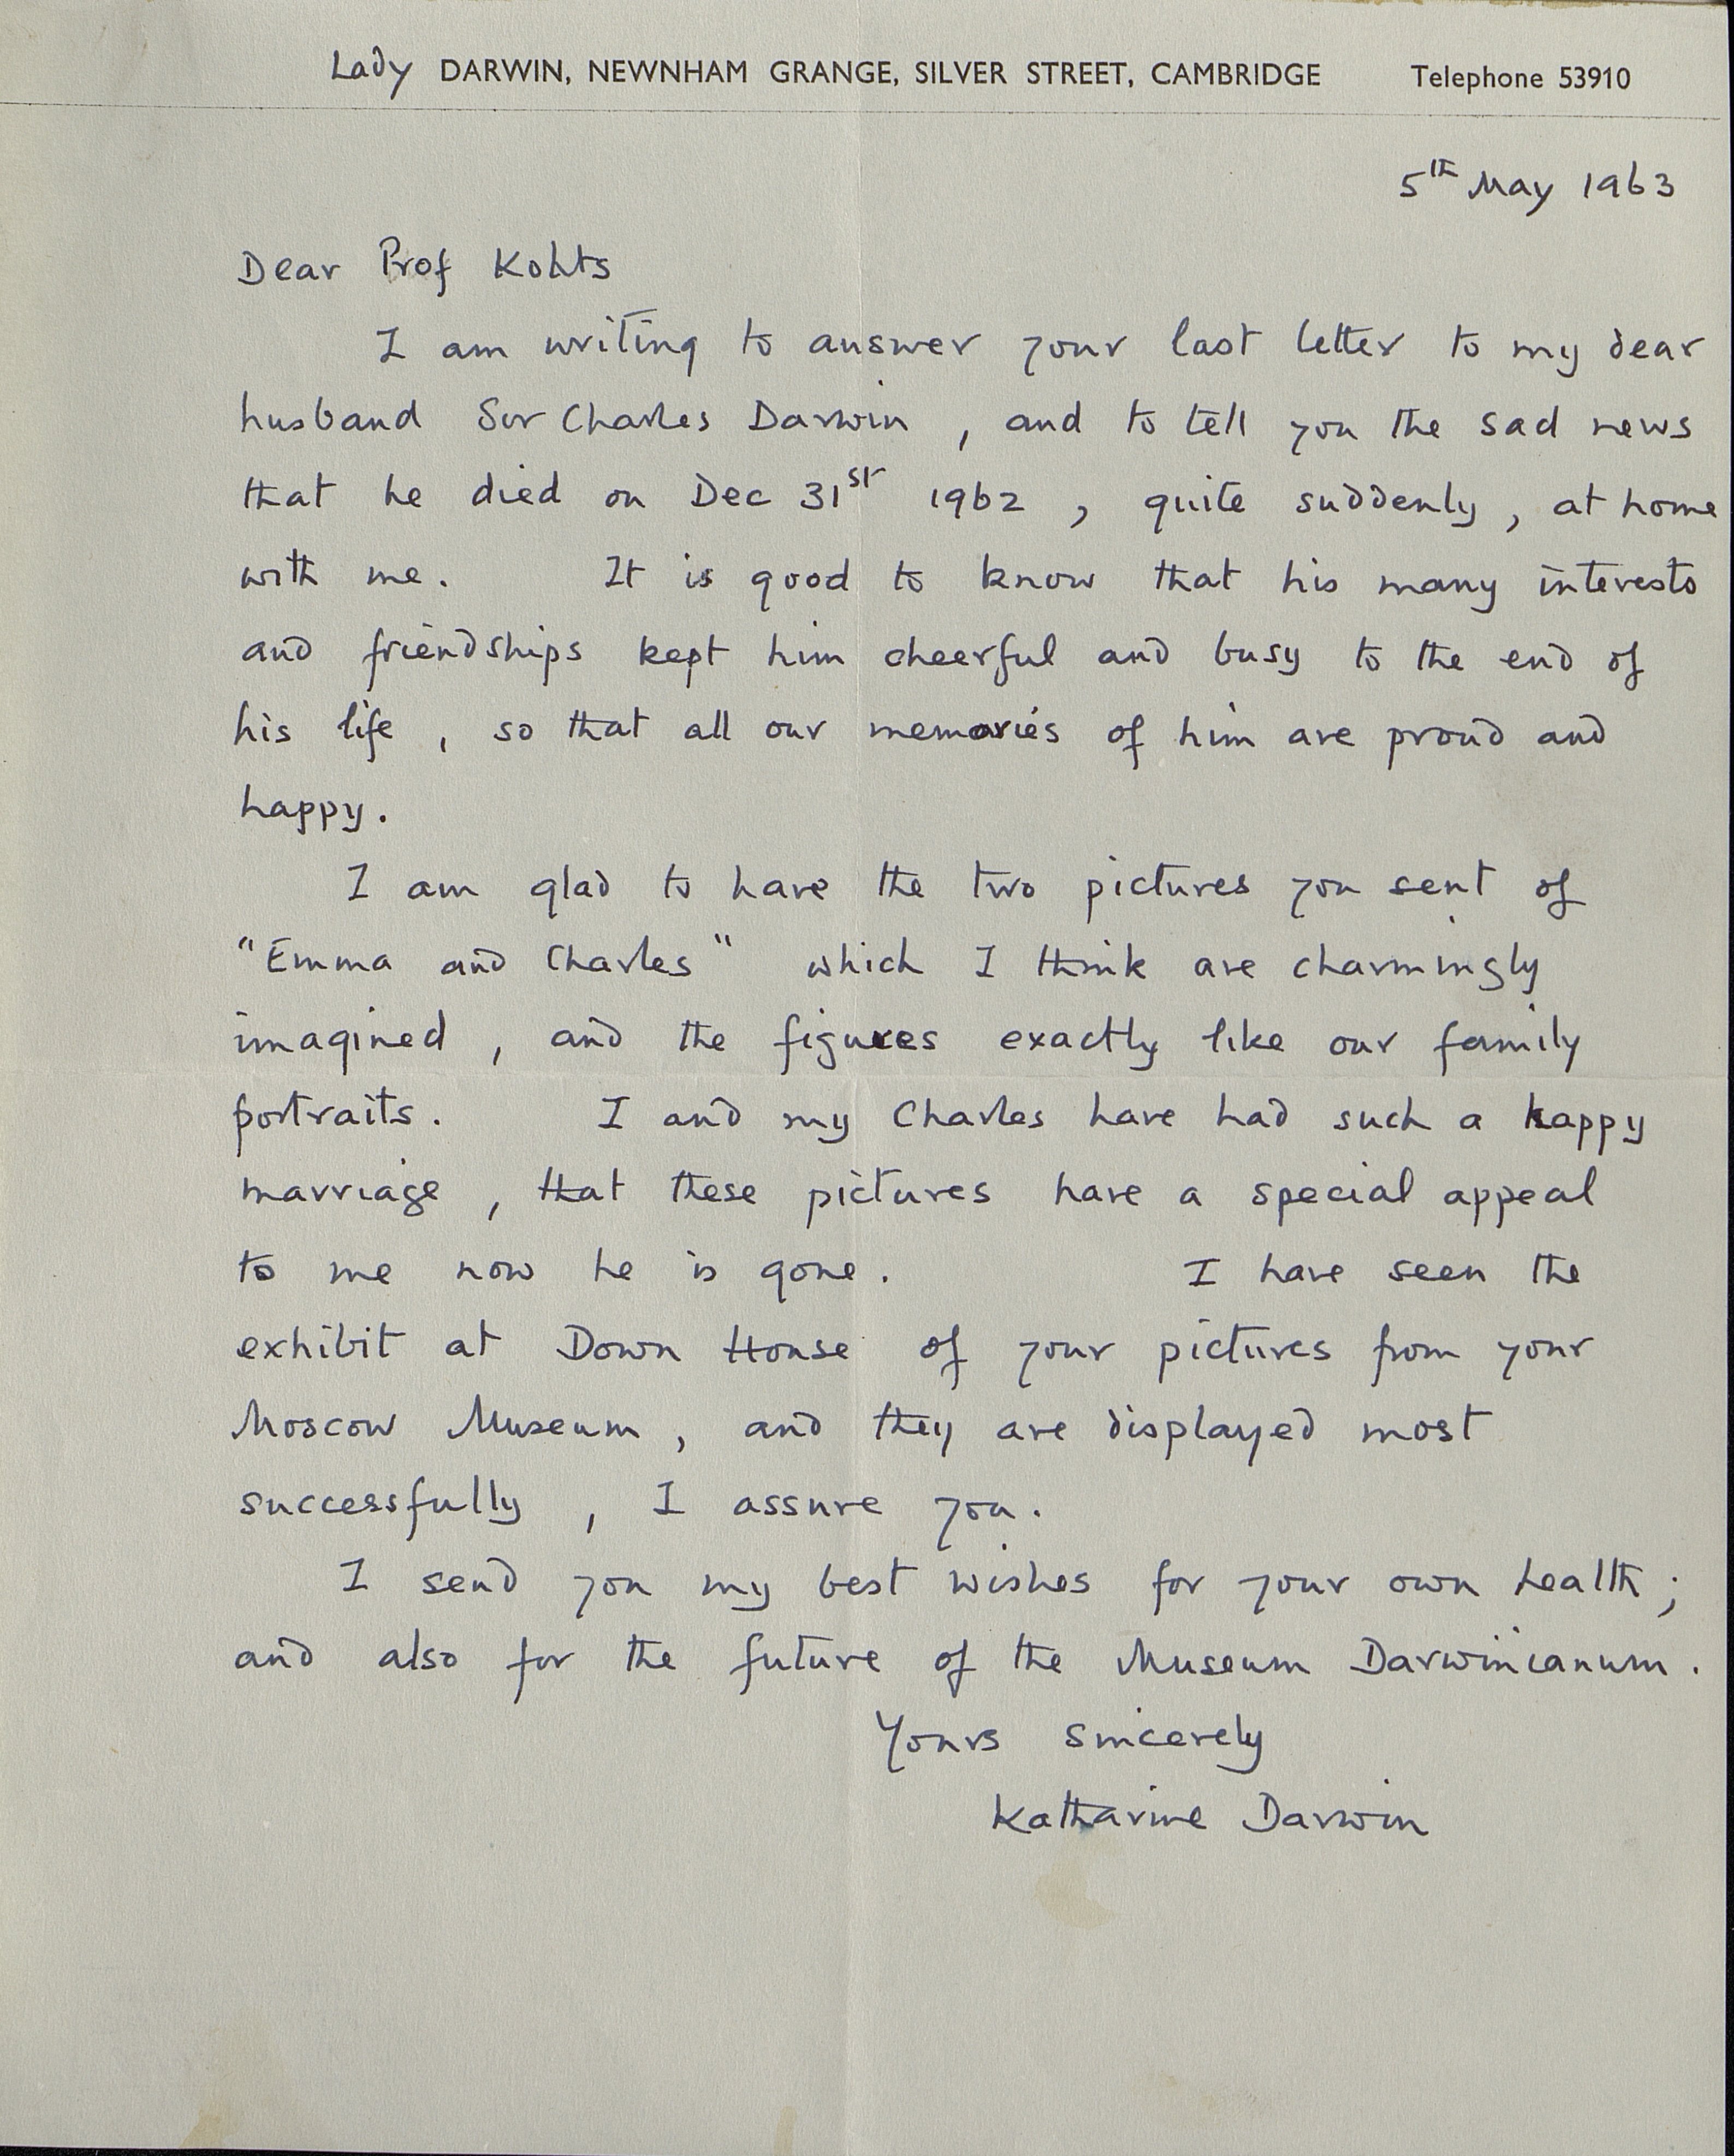 Lady DARWIN, NEWNHAM GRANGE, SILVER STREET, CAMBRIDGE Telephone 53910
5th May 1963
Dear Prof Kohts
I am writing to answer your last letter to my dear
husband Sir Charles Darwin , and to tell you the sad news
that he died on Dec 31st 1962 , quite suddenly , at home
with me. It is good to know that his many interests
and friendships kept him cheerful and busy to the end of
his life , so that all our memories of him are proud and
happy.
I am glad to have the two pictures you sent of
"Emma and Charles" which I think are charmingly
imagined , and the figures exactly like our family
portraits. I and my Charles have had such a happy
marriage , that these pictures have a special appeal
to me now he is gone. I have seen the
exhibit at Down House of your pictures from your
Moscow Museum , and they are displayed most
successfully , I assure you.
I send you my best wishes for your own health ;
and also for the future of the Museum Darwinianum.
Yours sincerely
Katharine Darwin